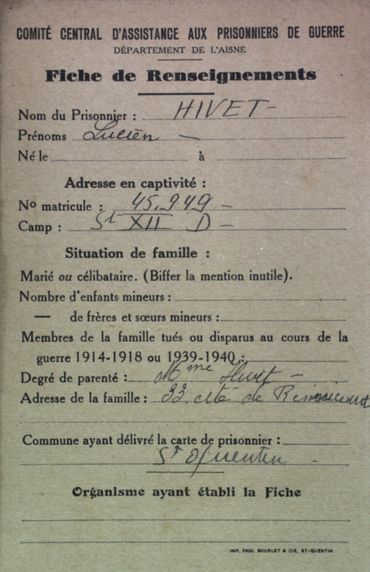 COMITÉ CENTRAL D'ASSISTANCE AUX PRISONNIERS DE GUERRE
DÉPARTEMENT DE L'AISNE
Fiche de Renseignements
Nom du Prisonnier : HIVET
Prénoms Lucien
Né le à
Adresse en captivité :
No matricule : 45.949
Camp : St XII D
Situation de famille :
Marié ou célibataire. (Biffer la mention inutile).
Nombre d'enfants mineurs :
— de frères et sœurs mineurs :
Membres de la famille tués ou disparus au cours de la
guerre 1914-1918 ou 1939-1940 :
Degré de parenté : Mme Hivet
Adresse de la famille : 33 de
Commune ayant délivré la carte de prisonnier :
St Quentin
Organisme ayant établi la Fiche
IMP. PAUL BOURLET & CIE, ST-QUENTIN